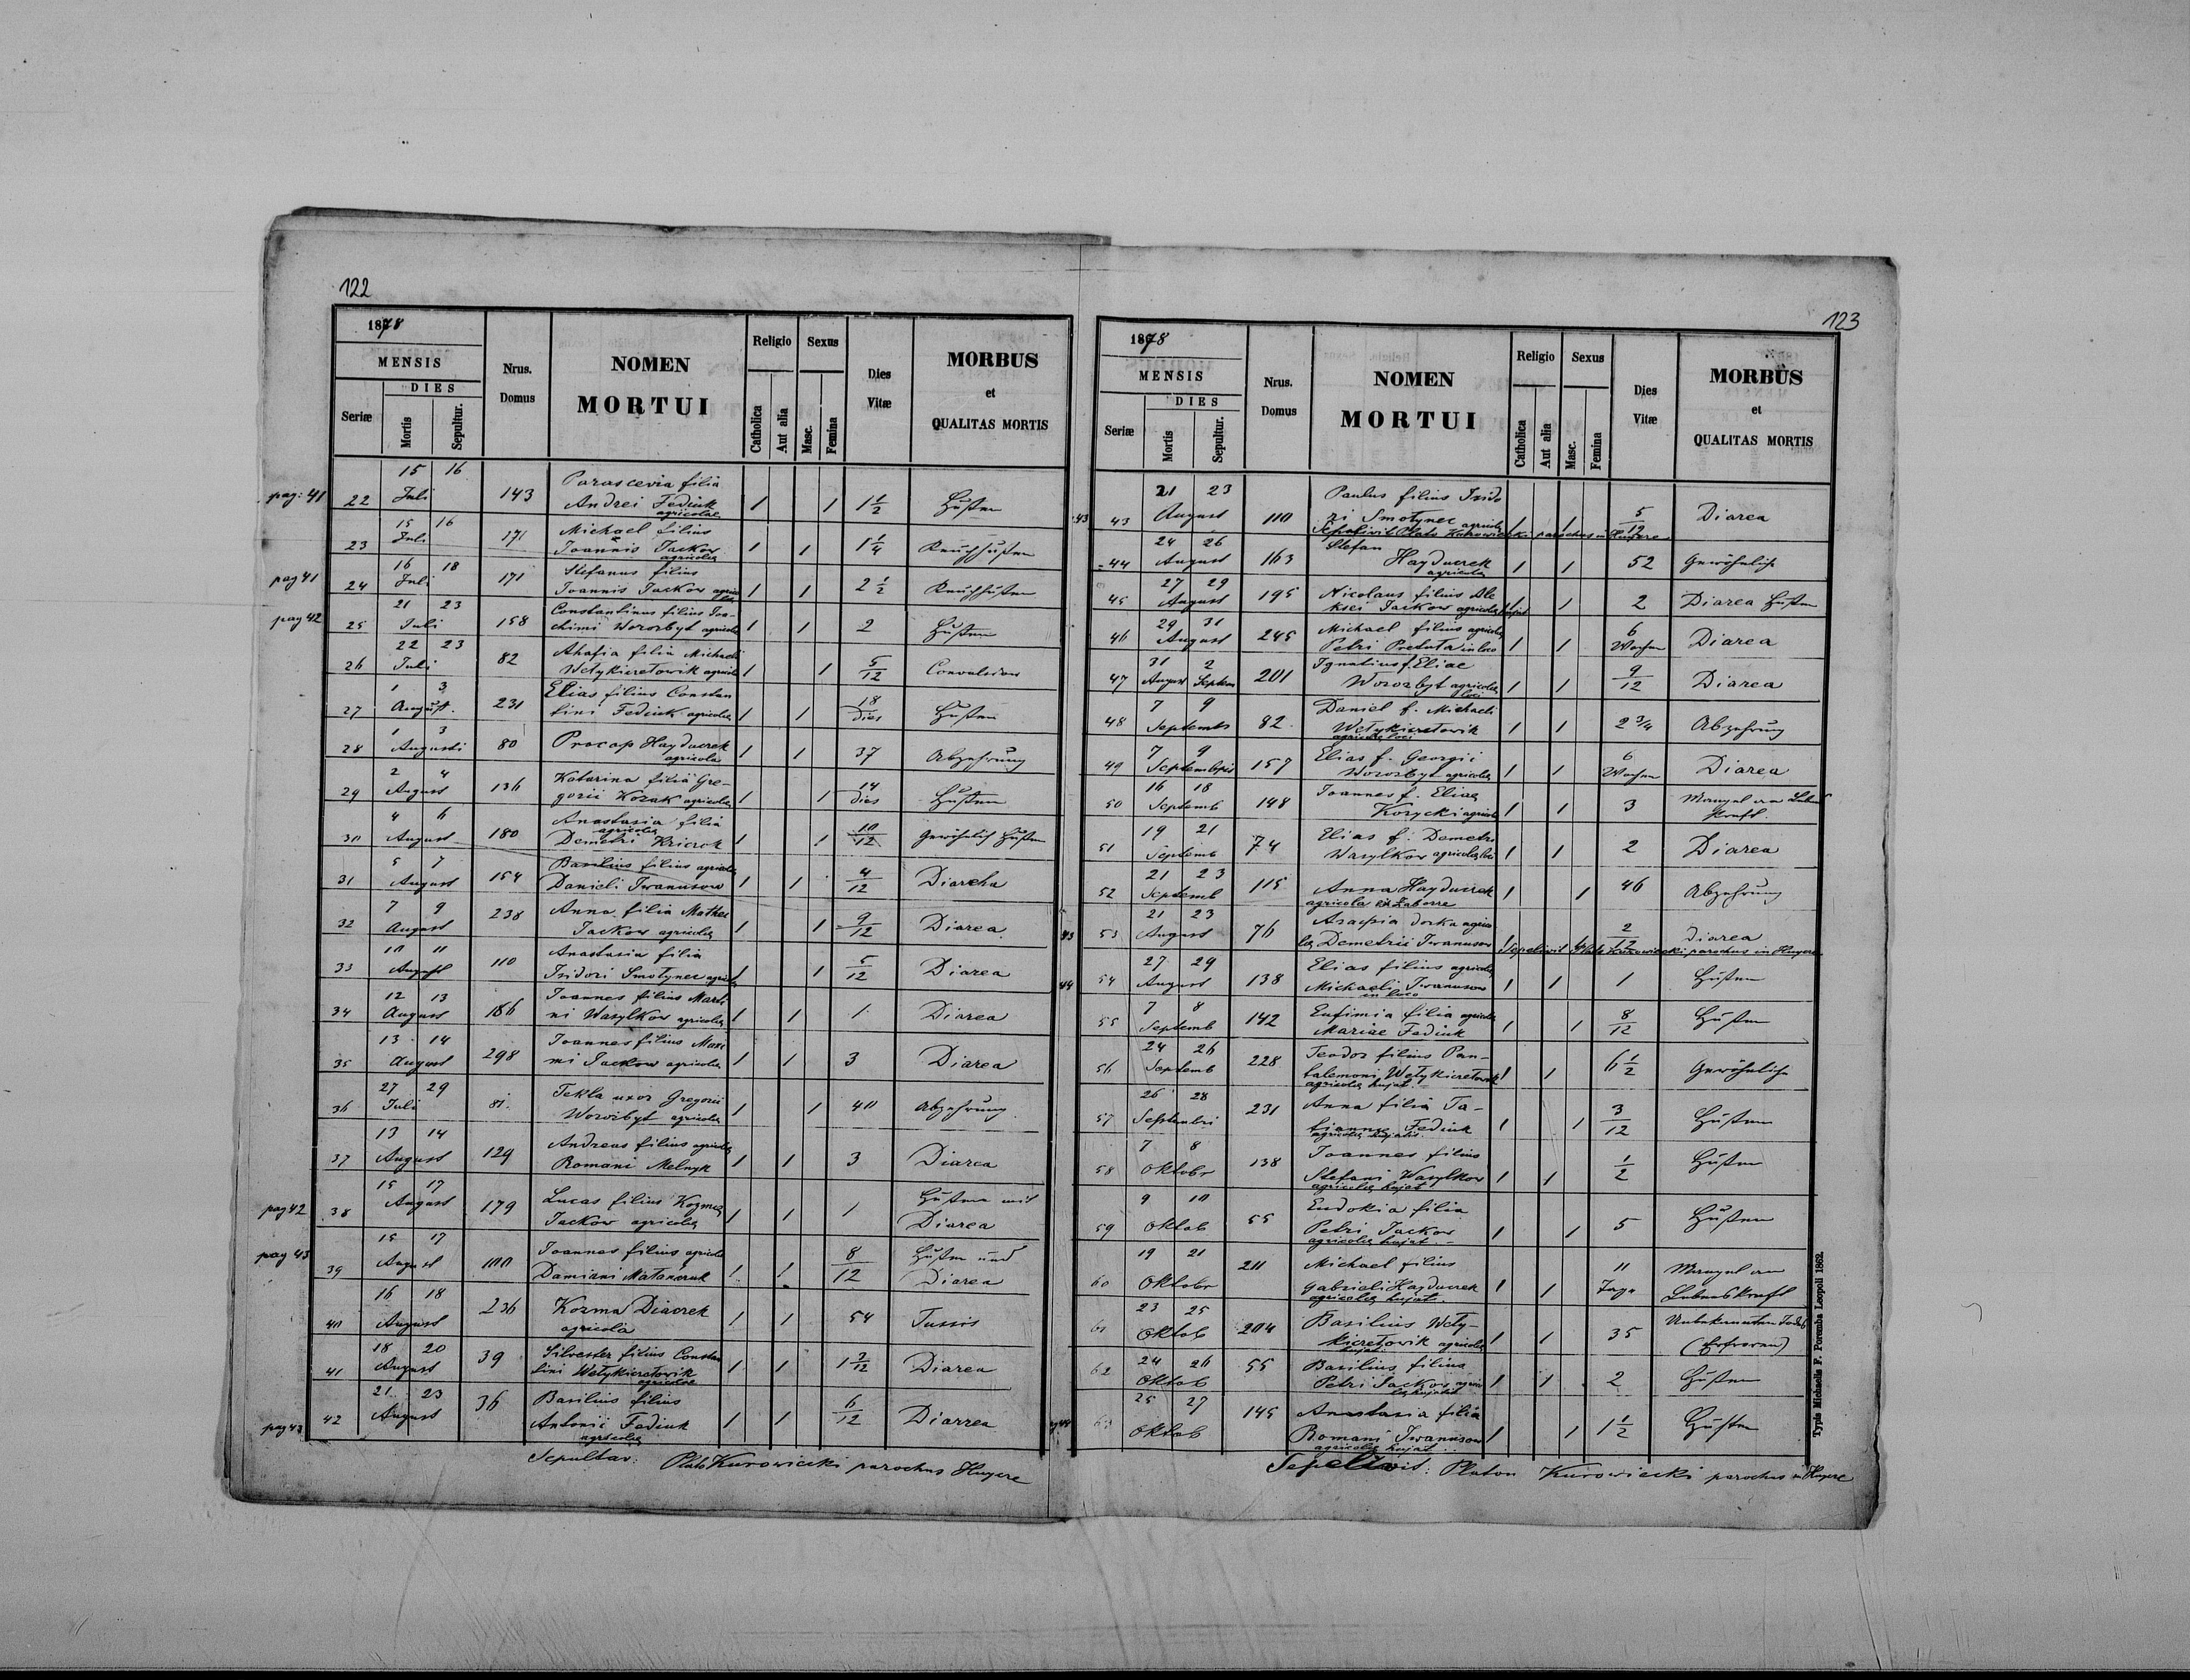 122
1878
MENSIS
DIES
Seriæ
Mortis
Sepultur.
Nrus. Domus
NOMEN
MORTUI
Religio
Catholica
Aut alia
Sexus
Masc.
Femina
Dies Vitæ
MORBUS
et
QUALITAS MORTIS
pag: 41
15 16
22 Juli 143 Parascevia filia
Andrei Fediuk 1 1 1 1/2 Husten
agricolae
15 16
23 Juli 171 Michael filius
Joannis Jackow 1 1 1 1/4 Keuchhusten
agricolae
pag 41
16 18
24 Juli 171 Stefanus filius
Joannis Jackow agricolae 1 1 2 1/2 Keuchhusten
pag 42
21 23
25 Juli 158 Constantinus filius Joa-
chimi Worozbyt agricolae 1 1 2 Husten
22 23
26 Juli 82 Ahafia filia Michaeli
Wetykieretowik agricolae 1 1 5/12 Convulsion
1 3
27 August. 231 Elias filius Constan
tini Fediuk agricolae 1 1 18 dies Husten
1 3
28 Augusti 80 Procap Hayduczek 1 1 37 Abzehrung
agricola
2 4
29 August 136 Katarina filia Gre-
gorii Kozak agricolae 1 1 14 dies Husten
4 6
30 August 180 Anastasia filia
agricolae
Demetri 1 1 10/12 Gewöhnlich Husten
5 7
31 August 154 Basilius filius agricolae
Danieli Iwanusow 1 1 4/12 Diareha
7 9
32 August 238 Anna filia Mathei
Jackow agricolae 1 1 9/12 Diarea
10 11
33 August 110 Anastasia filia
Isidori Smotynec agricolae 1 1 5/12 Diarea
12 13
34 August 186 Joannes filius Marti
ni Wasylkow agricolae 1 1 1 Diarea
13 14
35 August 298 Joannes filius Maxi
mi Jackow agricolae 1 1 3 Diarea
27 29
36 Juli 81. Tekla uxor Gregorii
Worozbyt agricolae 1 1 40 Abzehrung
13 14
37 August 129 Andreas filius agricolae
Romani Melnyk 1 1 3 Diarea
pag 42
15 17
38 August 179 Lucas filius Kozmae
Jackow agricolae 1 1 1 Husten mit
Diarea
pag 43
15 17
39 August 100 Joannes filius agricolae
Damiani Matanczuk 1 1 8/12 Husten und
Diarea
16 18
40 August 236 Kozma Diaczek 1 1 54 Tussis
agricola
18 20
41 August 39 Silvester filius Constan
tini Wetykieretowik 1 1 1 2/12 Diarea
agricolae
pag 43
21 23
42 August 36 Basilius filius
Antonii Fediuk 1 1 6/12 Diarrea
agricolae
Sepultav: Plato Kurowiecki parochus Hnyere
123
1878
MENSIS
DIES
Seriæ
Mortis
Sepultur.
Nrus. Domus
NOMEN
MORTUI
Religio
Catholica
Aut alia
Sexus
Masc.
Femina
Dies Vitæ
MORBUS
et
QUALITAS MORTIS
21 23
43 August 110 Paulus filius Isido
ri Smotynec agricolae 1 1 5/12 Diarea
Sepelivit Plato Kurowiecki parochus in Hnyere
24 26
44 August 163 Stefan
Hayduczek 1 1 52 Gewöhnlich
agricola
27 29
45 August 195 Nicolaus filius Ale
ksei Jackow agricolae hujat 1 1 2 Diarea Husten
29 31
46 August 245 Michael filius agricolae
Petri in loco 1 1 6 Wochen Diarea
31 2
47 August Septem 201 Ignatius f. Eliae
Worozbyt agricolae 1 1 9/12 Diarea
loci
7 9
48 Septembr 82 Daniel f. Michaeli
Wetykieretowik 1 1 2 3/4 Abzehrung
agricolae loci
7 9
49 Septembris 157 Elias f. Georgii
Worozbyt agricolae 1 1 6 Wochen Diarea
16 18
50 Septemb 148 Joannes f. Eliae
Korycki agricolae 1 1 3 Mangel an Lebens
kraft.
19 21
51 Septemb 74 Elias f. Demetri
Wasylkow agricolae loci 1 1 2 Diarea
21 23
52 Septemb 115 Anna Hayduczek 1 1 46 Abzehrung
agricola
21 23
53 August 76 agrico
lae Demetrii Iwanusow 1 2/12 Diarea
Sepelivit Plato Kurowiecki parochus in Hnyere
44
27 29
54 August 138 Elias filius agricolae
Michaeli Iwanusow 1 1 1 Husten
in loco
7 8
55 Septemb 142 Eufimia filia agricolae
Mariae Fediuk 1 1 8/12 Husten
24 26
56 Septemb 228 Teodor filius Pan-
talemoni Wetykieretowik 1 1 6 1/2 Gewöhnlich
agricolae hujat.
26 28
57 Septembri 231 Anna filia Ta-
tiannae Fediuk 1 1 3/12 Husten
agricolae hujatis
7 8
58 Oktobr 138 Joannes filius
Stefani Wasylkow 1 1 1/2 Husten
agricolae hujat
9 10
59 Oktob 55 Eudokia filia
Petri Jackow 1 1 5 Husten
agricolae hujat.
19 21
60 Oktobr 211 Michael filius
Gabrieli Hayduczek 1 1 11 Tage Mangel an
Lebenskraft
agricolae hujat.
23 25
61 Oktob 204 Basilius Wety-
kieretowik agricolae 1 1 35 Unbekannten Todes
(Erfroren)
24 26
62 Oktob 55 Basilius filius
Petri Jackow agrico 1 1 2 Husten
lae hujatis
25 27
63 Oktob 145 Anastasia filia
Romani Iwanusow 1 1 1 1/2 Husten
agricolae hujat.
Sepelivit: Platon Kurowiecki parochus in Hnyere
Typis Michaelis F. Poremba Leopoli 1862.